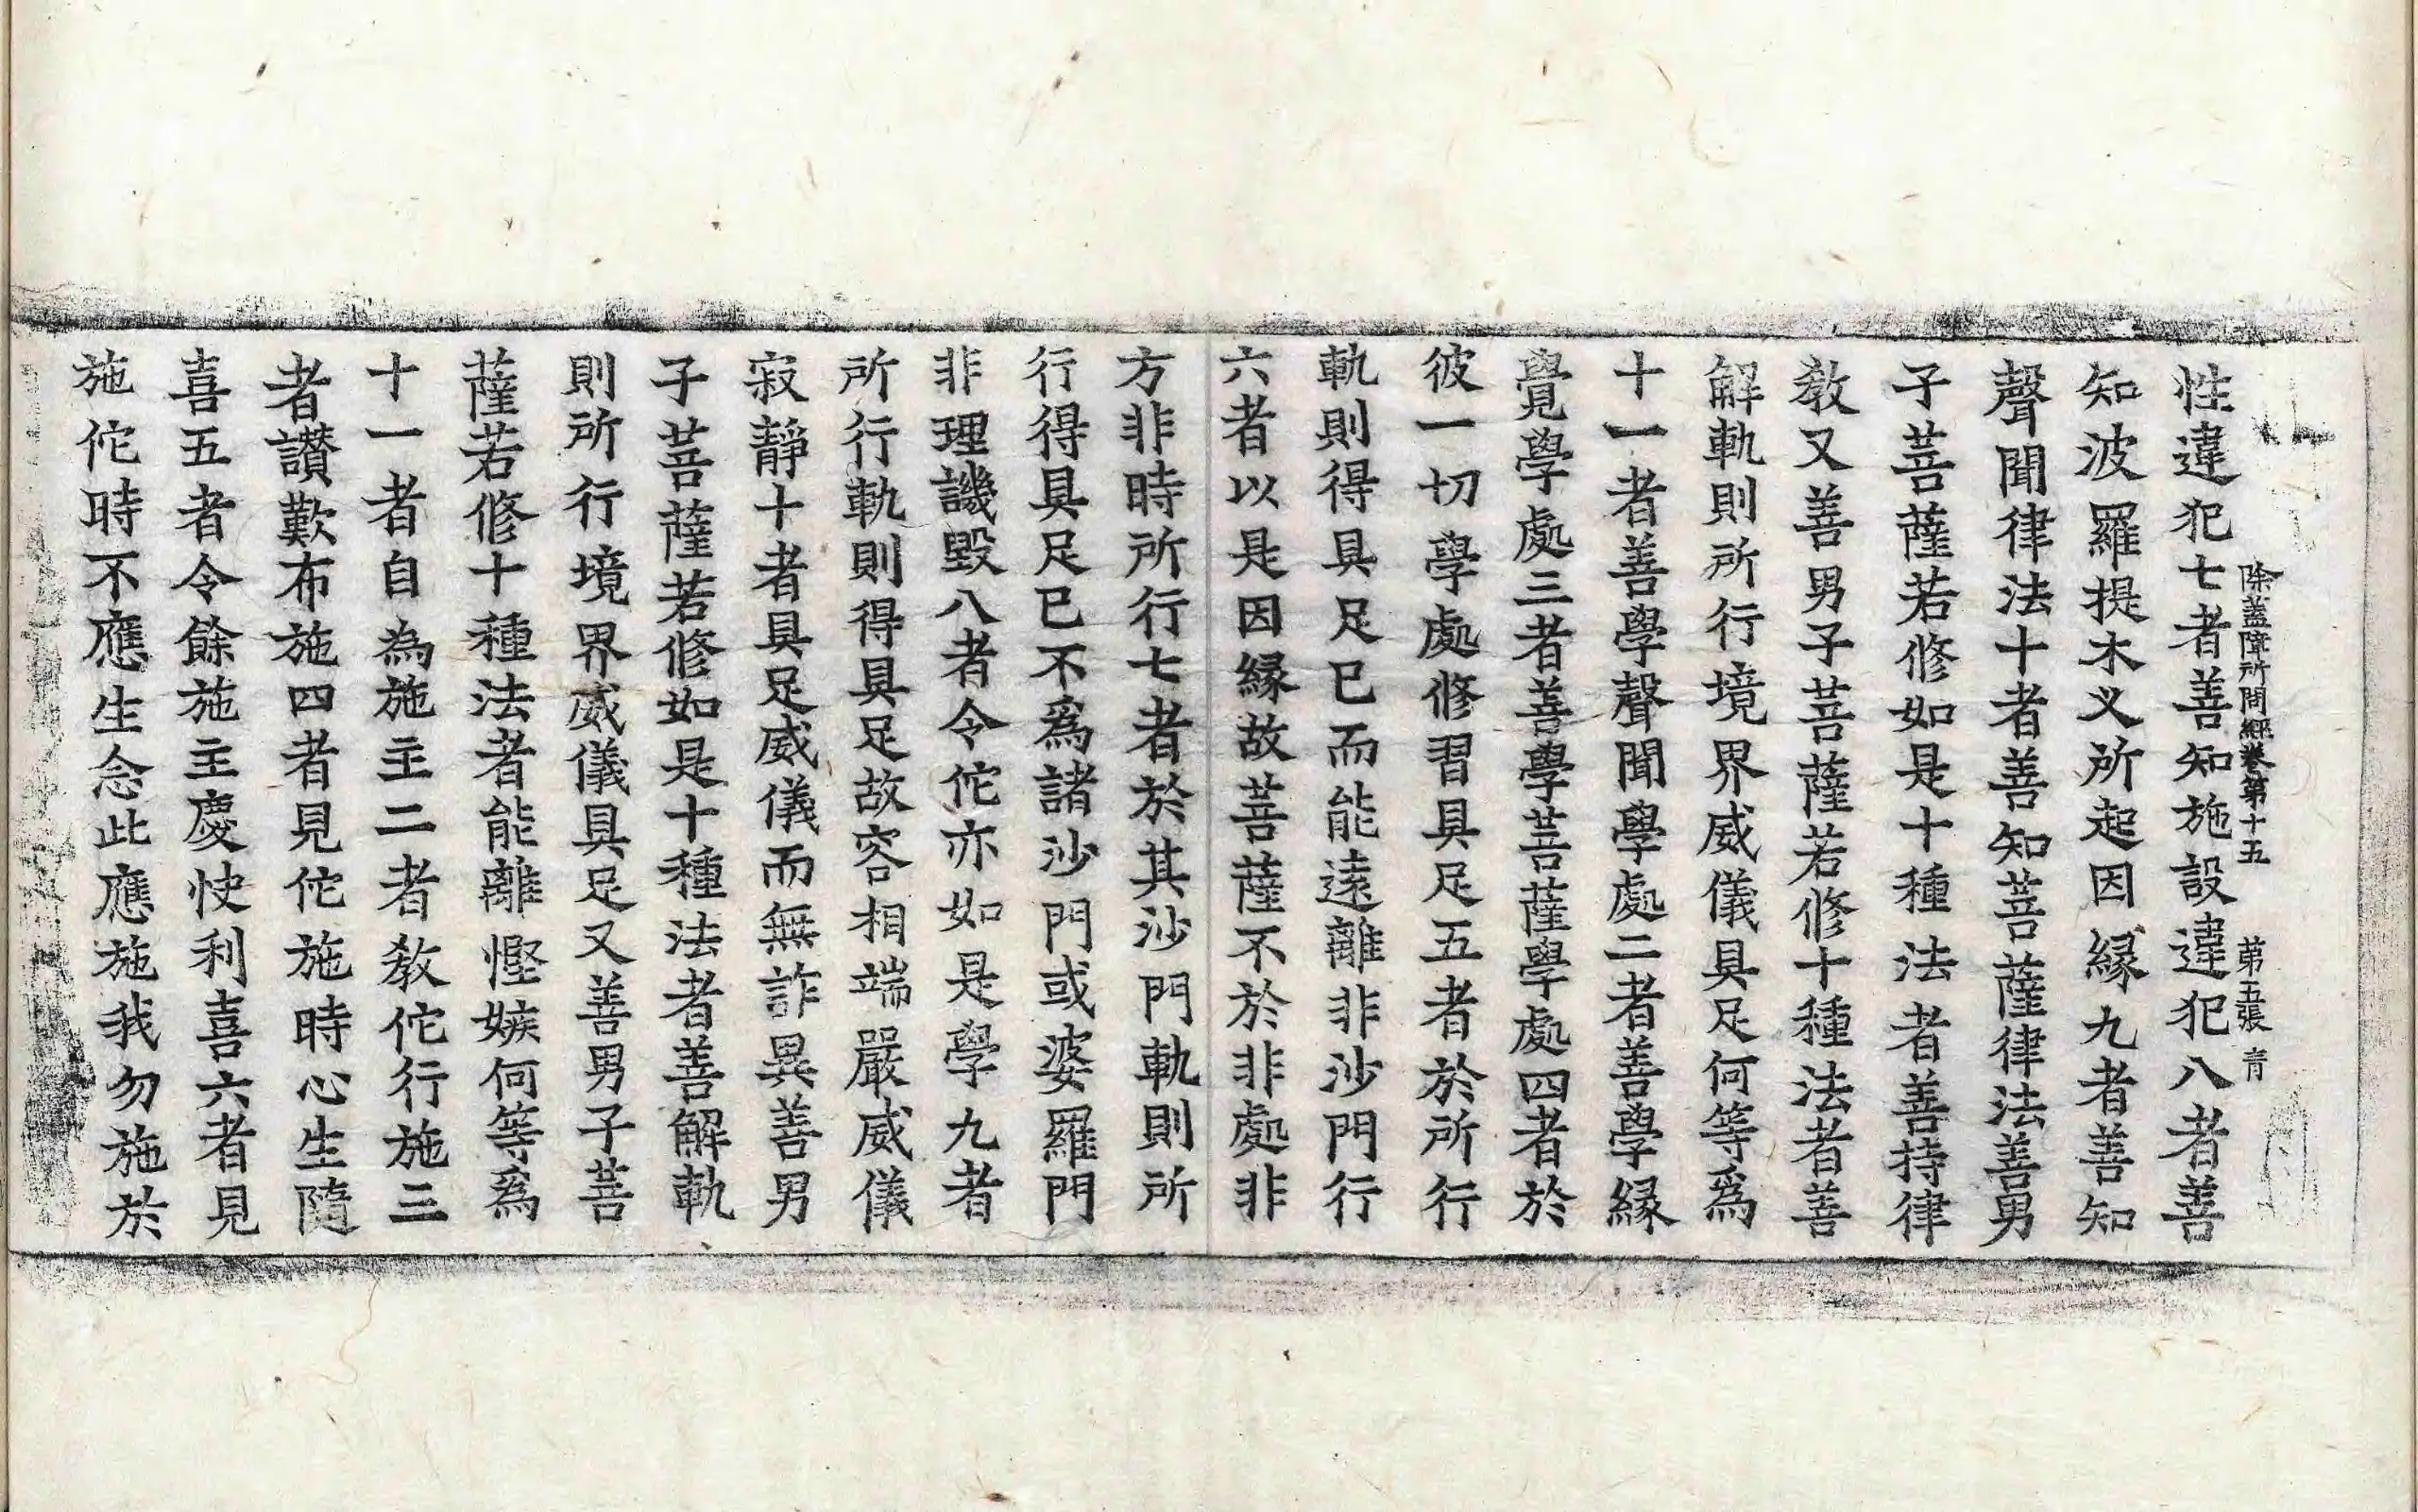 除蓋障所問經卷第十五　第五張　青
性違犯七者善知施設違犯八者善
知波羅提木义所起因縁九者善知
聲聞律法十者善知菩薩律法善男
子菩薩若修如是十種法者善持律
教又善男子菩薩若修十種法者善
解軌則所行境界威儀具足何等爲
十一者善學聲聞學處二者善學縁
覺學處三者善學菩薩學處四者於
彼一切學處修習具足五者於所行
軌則得具足已而能遠離非沙門行
六者以是因縁故菩薩不於非處非
方非時所行七者於其沙門軌則所
行得具足已不爲諸沙門或婆羅門
非理譏毀八者令佗亦如是學九者
所行軌則得具足故容相端嚴威儀
寂靜十者具足威儀而無詐異善男
子菩薩若修如是十種法者善解軌
則所行境界威儀具足又善男子菩
薩若修十種法者能離慳嫉何等爲
十一者自為施主二者教佗行施三
者讃歎布施四者見佗施時心生隨
喜五者令餘施主慶快利喜六者見
施佗時不應生念此應施我勿施於